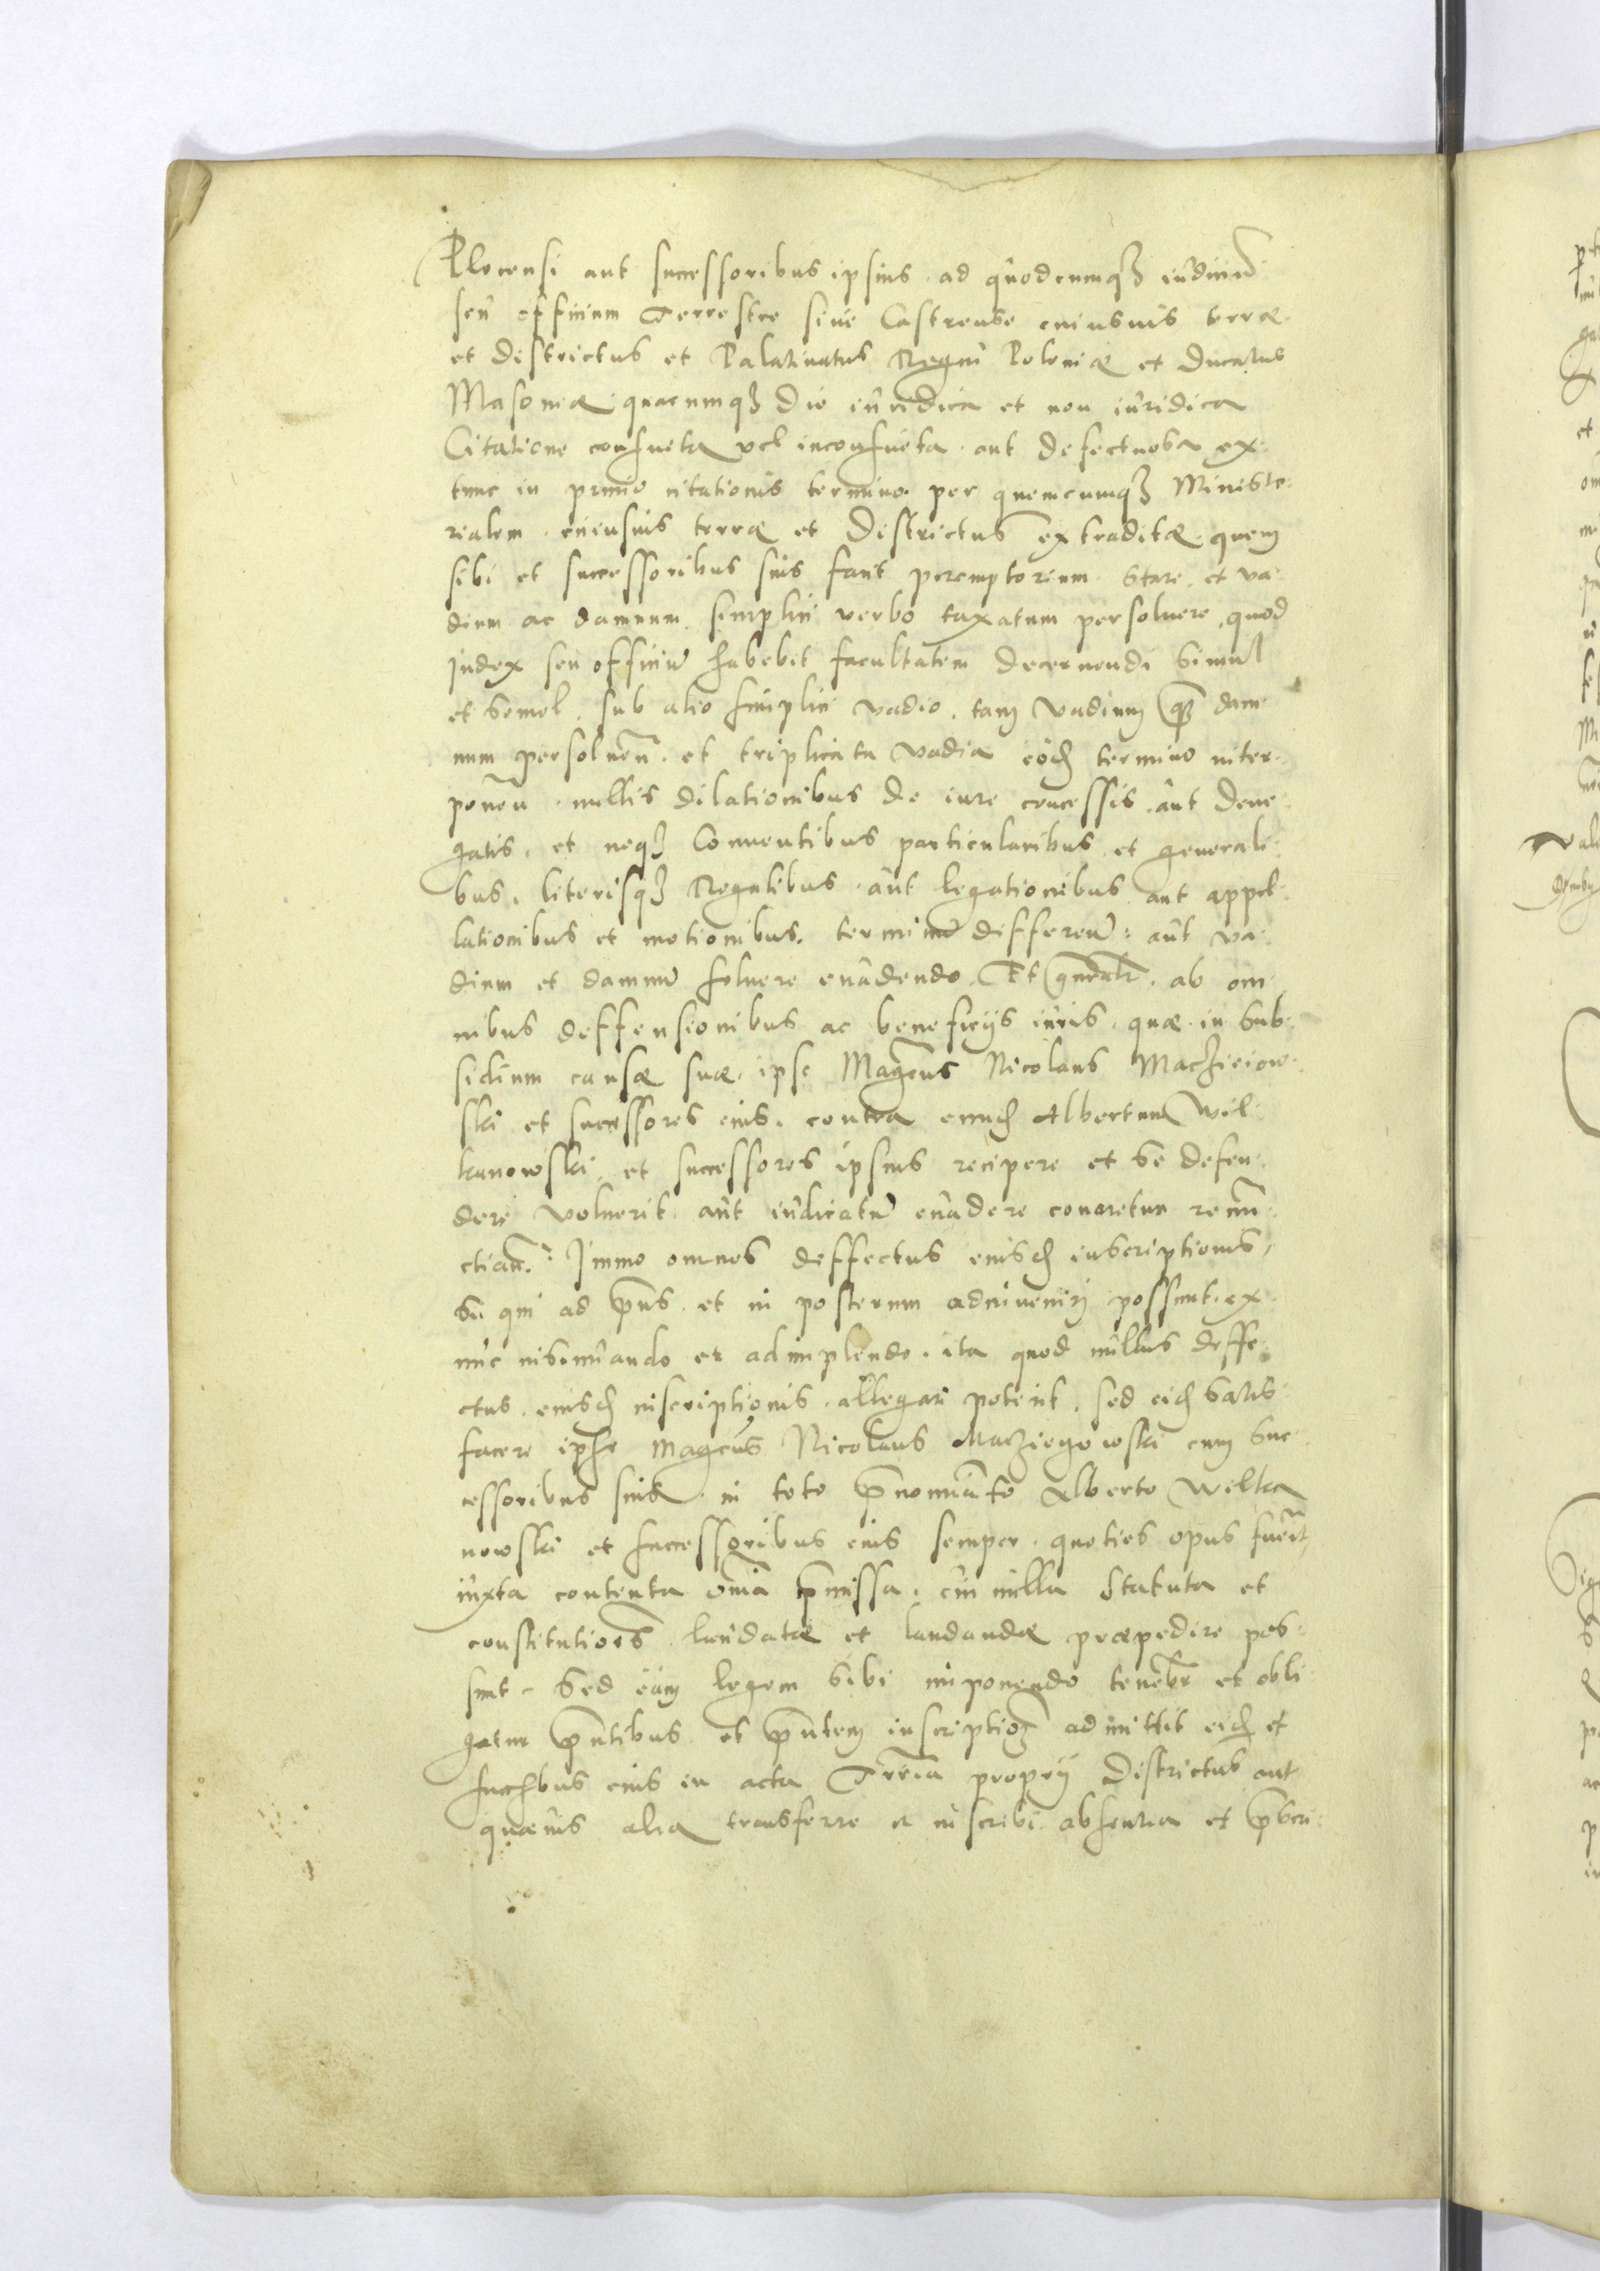 Plocensi aut successoribus ipsius ad quodcumqꝫ iudiciū
seu officium Terrestre siue Castrense cuiusuis terræ
et districtus et Palatinatus Regni Poloniæ et Ducatus
Masoniæ quacumqꝫ die iuridica et non iuridica
Citatione consueta vel inconsueta aut defectuosa ex
tunc in primo citationis termino per quemcumqꝫ Ministe
rialem cuiusuis terræ et Districtus extraditæ quem
sibi et successoribus suis fant peremptorium stare et va
dium ac damnum simplici verbo taxatum persoluere quod
Judex seu officiū habebit facultatem decernendi simul
et semel sub alio simplici vadio tam vadium qꝫ dam
num persoluen̄ et triplicata vadia eodē termino inter
ponen̄ nullis dilationibus de iure concessis aut dene
gatis et neqꝫ Conuentibus particularibus et generali
bus literisqꝫ Regalibus aut legationibus aut appel
lationibus et motionibus terminū differen̄ aut va
dium et damnū soluere euadendo Et gn̄ralr ab om
nibus deffensionibus ac beneficijs iuris quæ in sub
sidium causæ suæ ipse Magcus Nicolaus Maczieiow
ski et successores eius contra eundē Albertum Wil
kanowski et successores ipsius recipere et se defen
dere voluerit aut iudicatū euadere conaretur renū
ctian̄ Immo omnes deffectus eiusdē inscriptionis
si qui ad pn̄s et in posterum adinueniri possint ex
nūc insinuando et adimplendo ita quod nullus deffe
ctus eiusdē inscriptionis allegari poterit sed eidē satis
facere ipse Magcus Nicolaus Macziegowski cum suc
cessoribus suis in toto p̄nominato Alberto Wilka
nowski et successoribus eius semper quoties opus fuerit
iuxta contenta omīa p̄missa cūi nulla Statuta et
constitutiones laudatæ et laudandæ præpedire pos
sint Sed eam legem sibi imponendo tenebr et obli
gatur pn̄tibus et pn̄tem inscriptionē admittit eidē et
succbus eius in acta Trr̄ia proprij Districtus aut
quæuis alia transferre et inscribi absentia et p̄scri